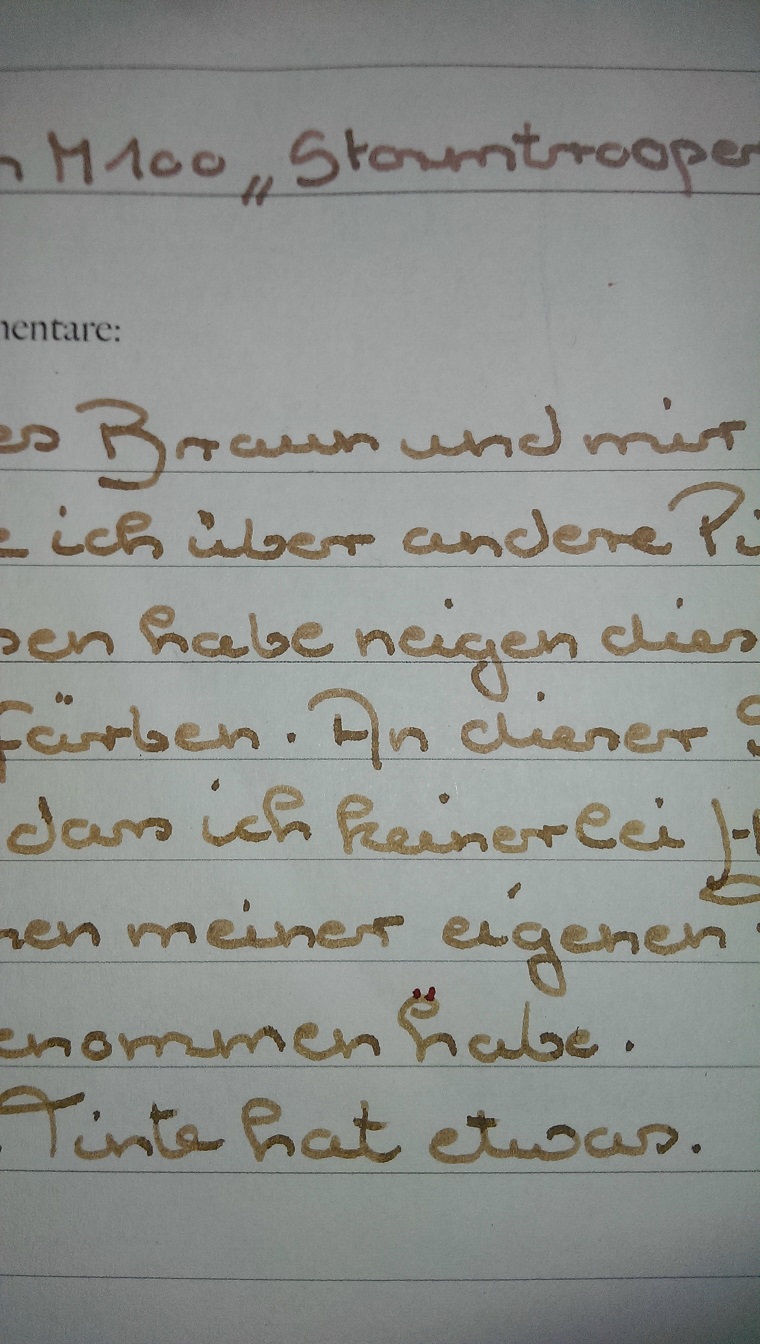 n M100 „Stormtrooper
mentare:
es Braun und mir
e ich über andere Pi
sen habe neigen dies
färben. An dieser S
dass ich keinerlei H
nen meiner eigenen
enommen habe.
Tinte hat etwas.